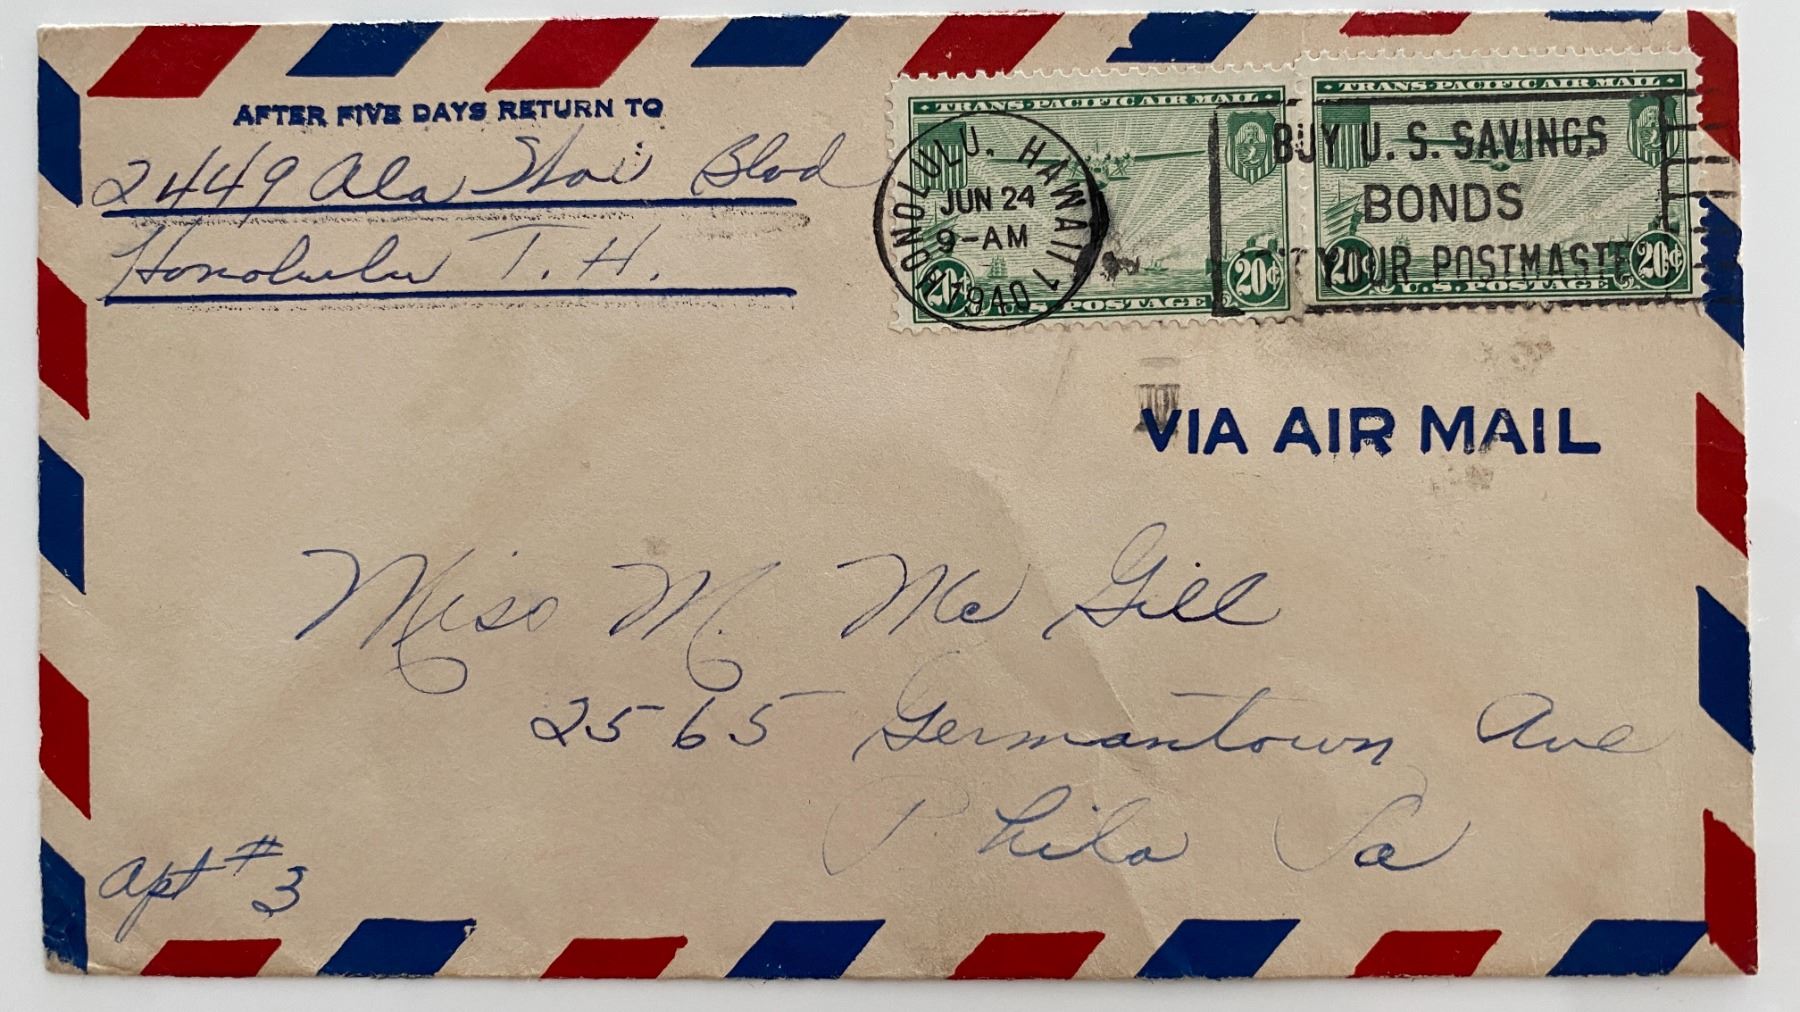 AFTER FIVE DAYS RETURN TO
2449 Ala Wai Blvd
Honolulu T. H.
TRANS-PACIFIC AIR MAIL
20¢ 20¢
U.S. POSTAGE
TRANS-PACIFIC AIR MAIL
20¢ 20¢
U.S. POSTAGE
HONOLULU. HAWAII 1
JUN 24
9-AM
1940
BUY U. S. SAVINGS
BONDS
YOUR POSTMASTE
VIA AIR MAIL
Miss M. Mc Gill
2565 Germantown Ave
Phila Pa
Apt #3